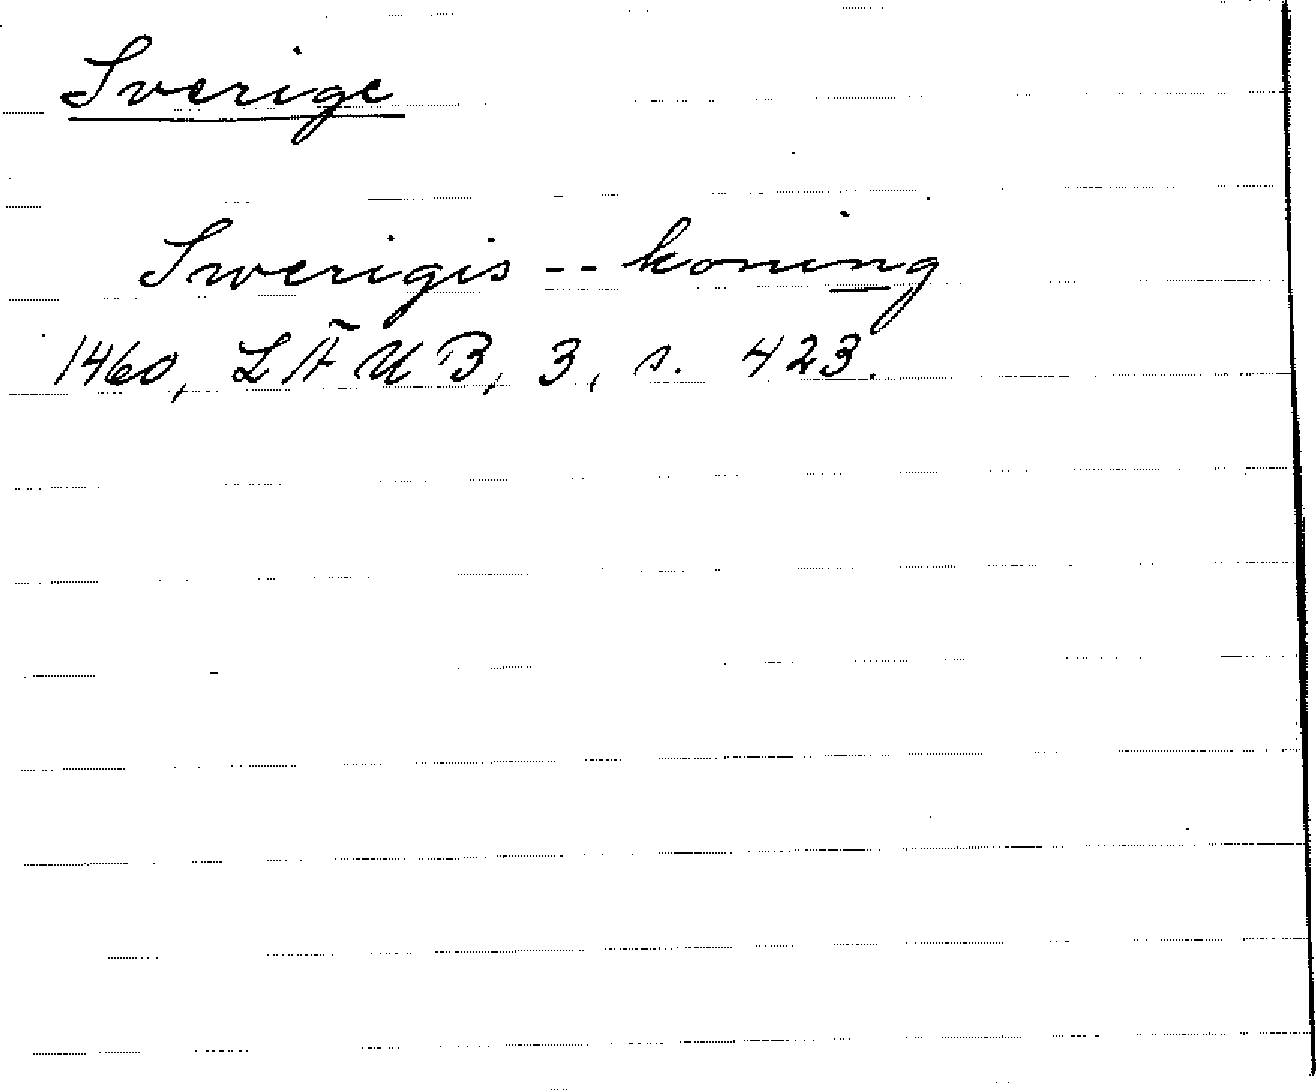 Sverige
Swerigis -- koning
1460, LÄUB, 3, s. 423.